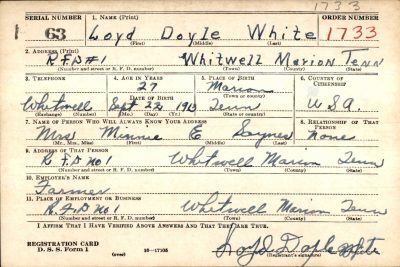 1733
SERIAL NUMBER 1. NAME (Print) ORDER NUMBER
63 Loyd Doyle White 1733
(First) (Middle) (Last)
2. ADDRESS (Print)
R.F.D #1 Whitwell Marion Tenn
(Number and street or R. F. D. number) (Town) (County) (State)
3. TELEPHONE 4. AGE IN YEARS 5. PLACE OF BIRTH 6. COUNTRY OF CITIZENSHIP
27 Marion
DATE OF BIRTH (Town or county)
Whitwell Sept 22 1913 Tenn U.S.A.
(Exchange) (Number) (Mo.) (Day) (Yr.) (State or country)
7. NAME OF PERSON WHO WILL ALWAYS KNOW YOUR ADDRESS 8. RELATIONSHIP OF THAT PERSON
Mrs Minnie E None
(Mr., Mrs., Miss) (First) (Middle) (Last)
9. ADDRESS OF THAT PERSON
R F D No 1 Whitwell Marion Tenn
(Number and street or R. F. D. number) (Town) (County) (State)
10. EMPLOYER'S NAME
Farmer
11. PLACE OF EMPLOYMENT OR BUSINESS
R.F.D No 1 Whitwell Marion Tenn
(Number and street or R. F. D. number) (Town) (County) (State)
I AFFIRM THAT I HAVE VERIFIED ABOVE ANSWERS AND THAT THEY ARE TRUE.
REGISTRATION CARD
D. S. S. Form 1 (over) 16—17105 Loyd Doyle White
(Registrant's signature)